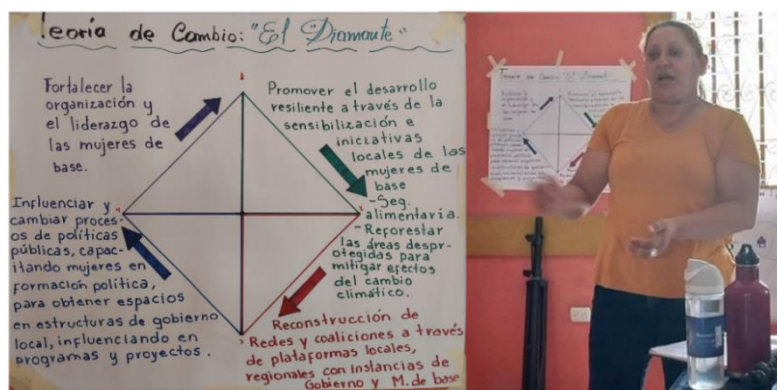 Teoría de Cambio: "El Diamante"
Fortalecer la
organización y
el liderazgo de
las mujeres de
base.
Promover el desarrollo
resiliente a través de la
sensibilización e
iniciativas
locales de las
mujeres de
base
-Seg.
alimentaria.
-Reforestar
las áreas despr-
otegidas para
mitigar efectos
del cambio
climático.
Influenciar y
cambiar proces-
os de políticas
públicas, capac-
itando mujeres en
formación política,
para obtener espacios
en estructuras de gobierno
local, influenciando en
programas y proyectos.
Reconstrucción de
Redes y coaliciones a través
de plataformas locales,
regionales con Instancias de
Gobierno y M. de base
Teoría de Cambio "El Diamante"